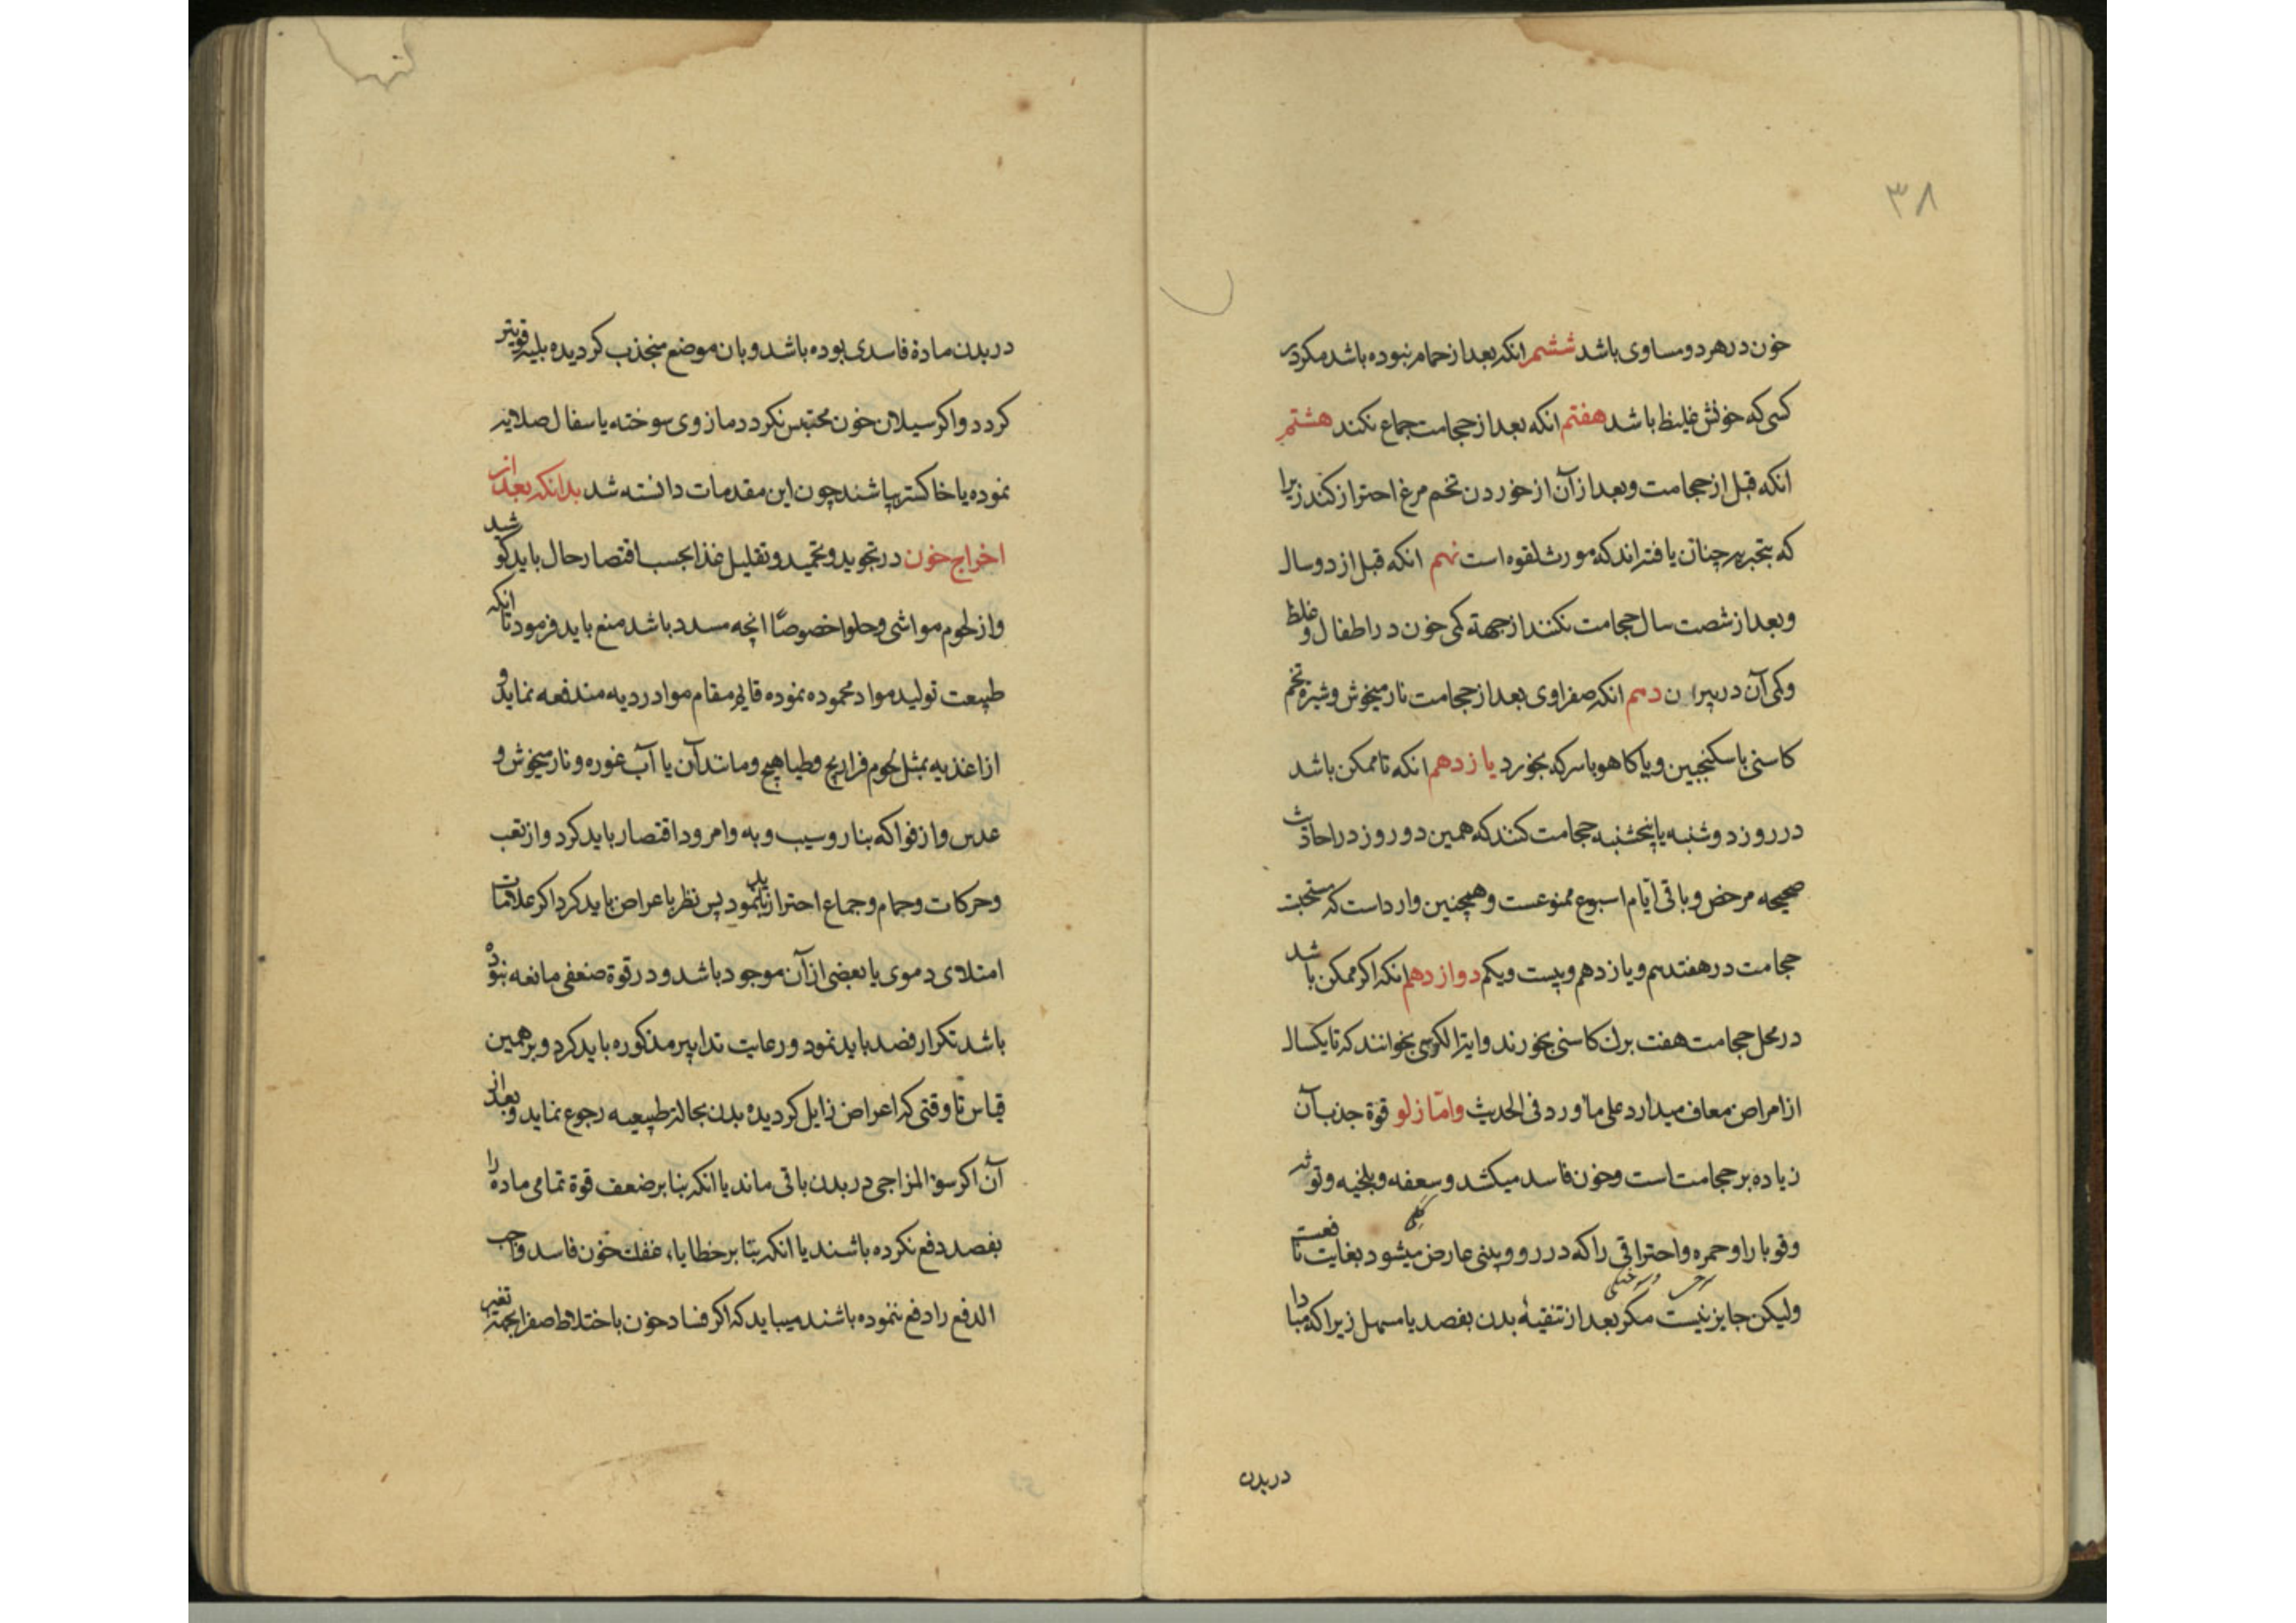 ۳۸
خون در هر دو مساوی باشد ششم انکه بعد از حمام نبوده باشد مکر در
کسی که خونش غلیظ باشد هفتم انکه بعد از حجامت جماع نکند هشتم
انکه قبل از حجامت و بعد از آن از خوردن تخم مرغ احتراز کند زیرا
که بتجربه چنان یافته‌اند که مورث لقوه است نهم انکه قبل از دو سال
و بعد از شصت سال حجامت نکنند از جهة کمی خون در اطفال و غلظ
و کمی آن در پیران دهم انکه صفراوی بعد از حجامت نار میخوش و شیره تخم
کاسنی با سکنجبین و یا کاهو با سرکه بخورد یازدهم انکه تا ممکن باشد
در روز دوشنبه یا پنجشنبه حجامت کنند که همین دو روز در احادث
صحیحه مرخص و باقی ایام اسبوع ممنوعست و همچنین وارد است که
حجامت در هفتدهم و یازدهم و بیست و یکم دوازدهم انکه اکر ممکن باشد
در محل حجامت هفت برک کاسنی بخورند و ایة الکرسی بخوانند که تا یکسال
از امراض معاف میدارد علی ما ورد فی الحدیث و امّا زلو قوة جذب آن
زیاده بر حجامت است و خون فاسد میکشد و سعفه و بلخیه و توثه
و قوبا را و حمره و احتراقی را که در رو و بینی عارض میشود بغایت نافعست
ولیکن جایز نیست مکر بعد از تنقیهٔ بدن بفصد یا مسهل زیرا که مبادا
در بدن
در بدن مادة فاسدی بوده باشد و بان موضع منجذب کردیده بلیه قویتر
کردد و اکر سیلان خون محتبس نکردد مازوی سوخته یا سفال صلایه
نموده یا خاکستر بپاشند چون این مقدمات دانسته شد بدانکه بعد از
اخراج خون در تجوید و تحمید و تقلیل غذا بحسب اقتصار حال باید کوشید
و از لحوم مواشی و حلوا خصوصًا انچه مسدد باشد منع باید فرمود تا انکه
طبیعت تولید مواد محموده نموده قایم مقام مواد ردیه مندفعه نماید و
از اغذیه بمثل لحوم فراریج و طیاهیج و مانند آن یا آب غوره و نار میخوش و
عدس و از فواکه بنار و سیب و به و امرود اقتصار باید کرد و از تعب
و حرکات و حمام و جماع احتراز باید نمود پس نظر باعراض باید کرد اکر علامات
امتلای دموی یا بعضی از آن موجود باشد و در قوة ضعفی مانعه نبوده
باشد تکرار فصد باید نمود و رعایت تدابیر مذکوره باید کرد و بر همین
قیاس تا وقتی که اعراض زایل کردیده بدن بحالة طبیعیه رجوع نماید و بعد از
آن اکر سوء المزاجی در بدن باقی ماند یا انکه بنا بر ضعف قوة تمامی ماده را
بفصد دفع نکرده باشند یا انکه بنا بر خطا یا غفلت خون فاسد واجب
الدفع را دفع ننموده باشند میباید که اکر فساد خون باختلاط صفرا بجهة تغیر